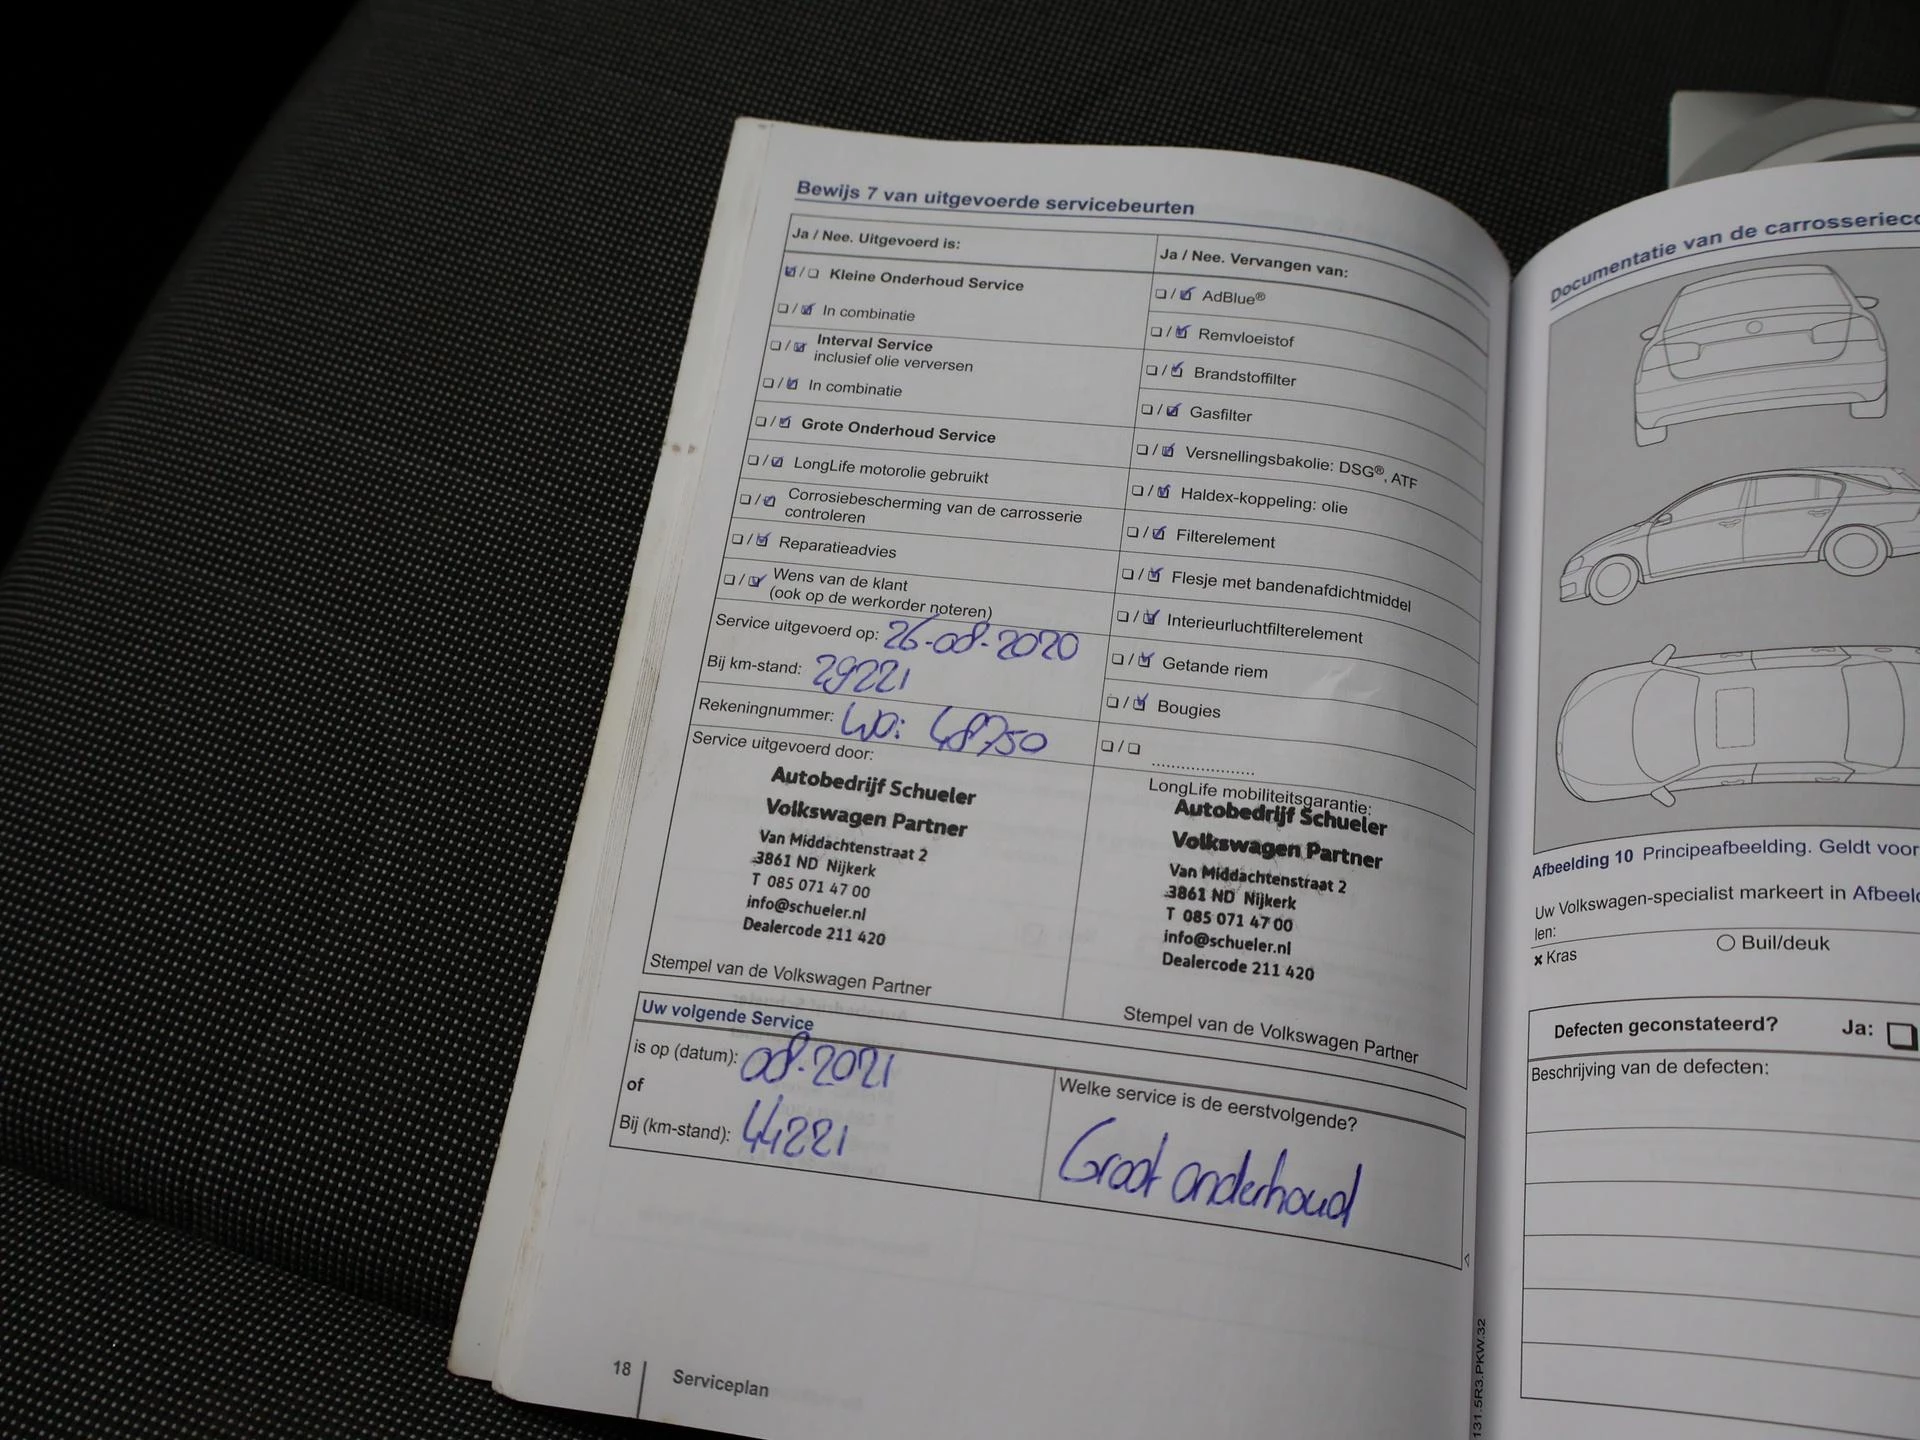 Bewijs 7 van uitgevoerde servicebeurten
Ja / Nee. Uitgevoerd is:
☑/☐ Kleine Onderhoud Service
☐/☑ In combinatie
☐/☑ Interval Service
inclusief olie verversen
☐/☑ In combinatie
☐/☑ Grote Onderhoud Service
☐/☑ LongLife motorolie gebruikt
☐/☑ Corrosiebescherming van de carrosserie
controleren
☐/☑ Reparatieadvies
☐/☑ Wens van de klant
(ook op de werkorder noteren)
Service uitgevoerd op: 26-08-2020
Bij km-stand: 29221
Rekeningnummer: WO: 48750
Service uitgevoerd door:
Autobedrijf Schueler
Volkswagen Partner
Van Middachtenstraat 2
3861 ND Nijkerk
T 085 071 47 00
info@schueler.nl
Dealercode 211 420
Stempel van de Volkswagen Partner
Ja / Nee. Vervangen van:
☐/☑ AdBlue®
☐/☑ Remvloeistof
☐/☑ Brandstoffilter
☐/☑ Gasfilter
☐/☑ Versnellingsbakolie: DSG®, ATF
☐/☑ Haldex-koppeling: olie
☐/☑ Filterelement
☐/☑ Flesje met bandenafdichtmiddel
☐/☑ Interieurluchtfilterelement
☐/☑ Getande riem
☐/☑ Bougies
☐/☐ ....................
LongLife mobiliteitsgarantie:
Autobedrijf Schueler
Volkswagen Partner
Van Middachtenstraat 2
3861 ND Nijkerk
T 085 071 47 00
info@schueler.nl
Dealercode 211 420
Stempel van de Volkswagen Partner
Uw volgende Service
is op (datum): 08-2021
of
Bij (km-stand): 44221
Welke service is de eerstvolgende?
Groot onderhoud
18 Serviceplan
131.5R3.PKW.32
Documentatie van de carrosseriec
Afbeelding 10 Principeafbeelding. Geldt voor
Uw Volkswagen-specialist markeert in Afbeel
len:
× Kras
○ Buil/deuk
Defecten geconstateerd? Ja: ☐
Beschrijving van de defecten: